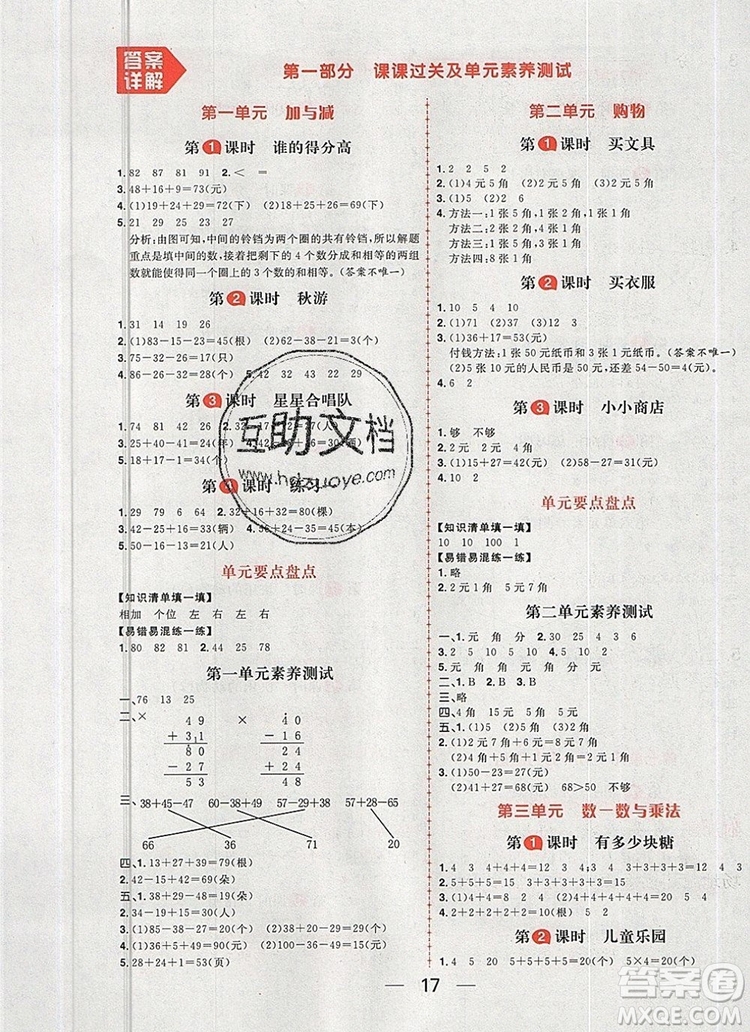 答案
详解
第一部分 课课过关及单元素养测试
第一单元 加与减
第1课时 谁的得分高
1. 82 87 81 91 2.< < =
3. 48+16+9=73(元)
4. (1)19+24+29=72(下) (2)18+29+25=72(下)
5. 21 29 25 23 27
分析:由图可知,中间的铃铛为两个圈的共有铃铛,所以解题
重点是填中间的数,接着把剩下的4个数分成和相等的两组
数就能使得同一个圈上的3个数的和相等。(答案不唯一)
第2课时 秋游
1. 31 14 19 26
2. (1)83-15-23=45(根) (2)62-38-21=3(个)
3. 75-32-26=17(只)
4. 86-26-28=32(个) 5. 42 32 43 22 29
第3课时 星星合唱队
1. 74 81 42 26
3. 25+40-32=33(人)
5. 18+17-1=34(人)
练习
1. 29 79 64 6 2. 32+16+32=80(棵)
3. 42-25+16=33(辆) 4. 36+24-35=45(本)
单元要点盘点
【知识清单填一填】
相加 个位 左 右 左 右
【易错易混练一练】
1. 80 82 34 2. 44 25 78
第一单元素养测试
一、76 13 25
二、× 49 × 40
+ 31 - 16
80 24
- 27 + 30
53 54
三、38+45-47 60-38+49 37+50-20 57+28-20
66 36 71 65
四、1. 13+27+39=79(根)
2. 42-15+15=42(朵)
五、1. 38+29-48=19(朵)
2. 34-19+15=30(人)
3. (1)35+46-60=21(个) (2)38-20+39=57(个)
4. (1)36+5+49=90(根) (2)100-90=10(根)
5. 28+24+1=53(页)
第二单元 购物
第1课时 买文具
1. 2 2 5 2
2. (1)4元5角 (2)2元2角
3. (1)5 (2)2 6
4. 方法一:1张5角,1张2角,1张1角
方法二:1张5角,3张1角
方法三:4张2角
方法四:8张1角
第2课时 买衣服
1. 10 5 4 2. 100 5 10
3. (1)57 (2)71
付钱方法:1张50元纸币和1张5元纸币。(答案不唯一)
5张10元的人民币是50元,还差54-50=4(元)
4. 6 2
第3课时 小小商店
1. 够 不够
2. 2元 2元 4角
3. (1)够 不够 (2)42-27+16=31(元)
4. 10 2
单元要点盘点
【知识清单填一填】
10 10 100 1
【易错易混练一练】
1. 略
2. 2元7角 1元5角 5元7角
第二单元素养测试
一、1. 元 角 分 2. 30 25 4 3 6
3. 2 5 10 50 4. 元 元 角 角 元
二、1. B 2. B 3. B
三、略
四、4角 2元 1元2角
五、1. (1)5 (2)5角 (3)1元
2. (1)2元7角+6元=8元7角
(2)2元7角+1元3角=4元
3. (1)42-24=18(元) (2)42+16=58(元)
4. (1)24+10-15=19(元)
(2)41+27=68(元) 68>50 不够
第三单元 数一数与乘法
第1课时 有多少块糖
1. 4 3 4+4+4=12 3+3+3+3=12
2. 5+5+5=15 3+3+3+3+3=15
3. (1)5+5+5+5=20 (2)4+4+4+4+4=20
4. 2+2+2+2+2=10(根) 5+5=10(根)
第2课时 儿童乐园
1. 4 5 20 5+5+5+5=20(个) 5×4=20(个)
17
互助文档
www.hdzuoye.com
答案圈
MXQE.COM